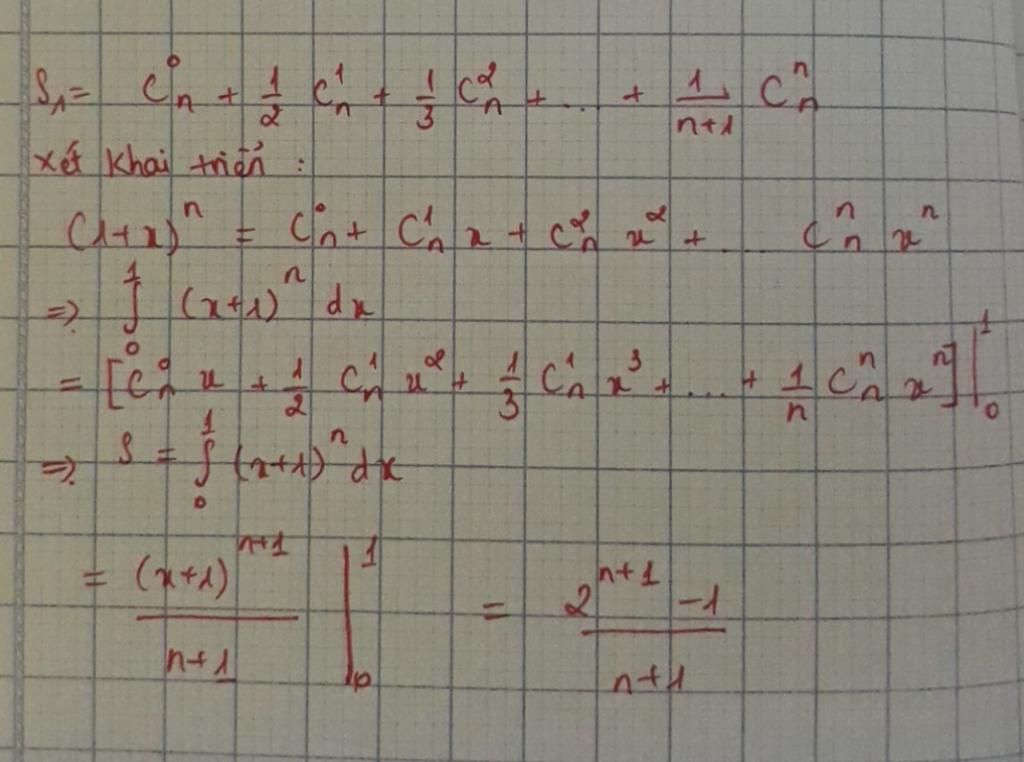 S₁ = C⁰ₙ + 1/2 C¹ₙ + 1/3 C²ₙ + ... + 1/(n+1) Cⁿₙ
xét khai triển :
(1+x)ⁿ = C⁰ₙ + C¹ₙ x + C²ₙ x² + ... Cⁿₙ xⁿ
=> ∫₀¹ (x+1)ⁿ dx
= [C⁰ₙ x + 1/2 C¹ₙ x² + 1/3 C¹ₙ x³ + ... + 1/n Cⁿₙ xⁿ] |₀¹
=> S = ∫₀¹ (x+1)ⁿ dx
= (x+1)ⁿ⁺¹/(n+1) |₀¹ = (2ⁿ⁺¹ - 1)/(n+1)